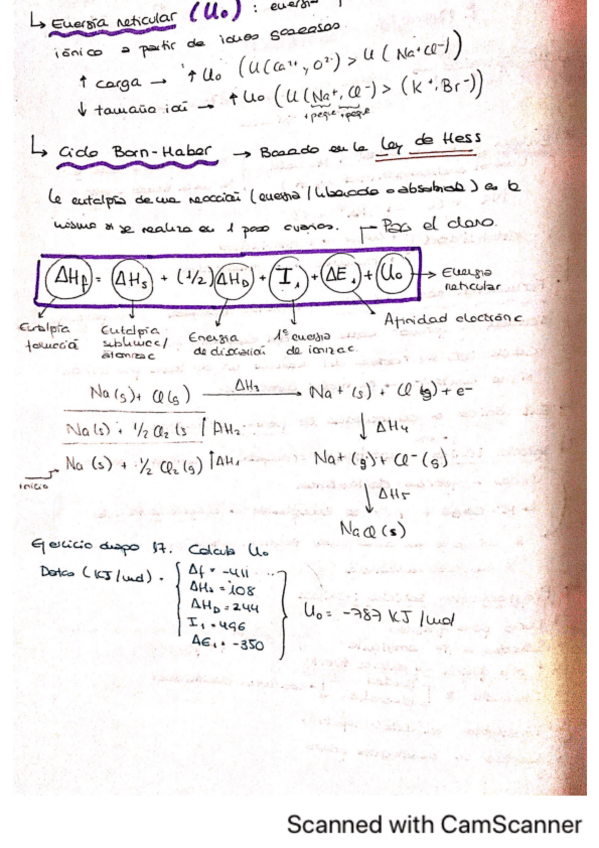 ↳ Energía reticular (U₀) : energí
iónico a partir de iones gaseosos.
↑ carga → ↑ U₀ (U(Ca²⁺, O²⁻) > U(Na⁺Cl⁻))
↓ tamaño ioi → ↑ U₀ (U(Na⁺, Cl⁻) > (K⁺, Br⁻))
+ peqe +peqe
↳ Ciclo Born-Haber → Basado en la Ley de Hess
La entalpía de una reacción (energía / liberada o absorbida) es la
mismo si se realiza en 1 paso o varios.
→ Pag el claro.
ΔHf = ΔHs + (1/2) ΔHD + I₁ + ΔE₁ + U₀ → Energía
reticular
Entalpía
formació
Entalpía
sublimac/
atomizac
Energía
de disociació
1ª energía
de ionizac.
Afinidad electrónic
Na(s) + Cl(g) ΔH₃ → Na+ (s) + Cl(g) + e-
Na(s) + 1/2 Cl₂ (s ↑ ΔH₂
↓ ΔH₄
inicio → Na (s) + 1/2 Cl₂ (g) ↑ΔH₁
Na+ (g) + Cl- (g)
↓ ΔH₅
NaCl (s)
Ejercicio diapo 17. Calcula U₀
Datos (KJ/mol).
Δf = -411
ΔHs = 108
ΔHD = 244
I₁ = 496
ΔE₁ = -350
U₀ = -787 KJ/mol
Scanned with CamScanner